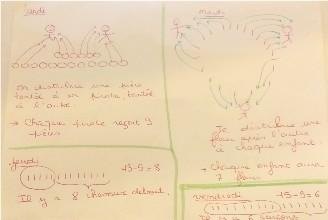 lundi
on distribue une pièce
tantôt à un pirate, tantôt
à l'autre
→ Chaque pirate reçoit 9
pièces
mardi
Je distribue une
fleur après l'autre
à chaque enfant.
→ Chaque enfant aura
fleurs
jeudi
-9=8
Il y a 8
vendredi
15-9=6
Il y a 6 garçons